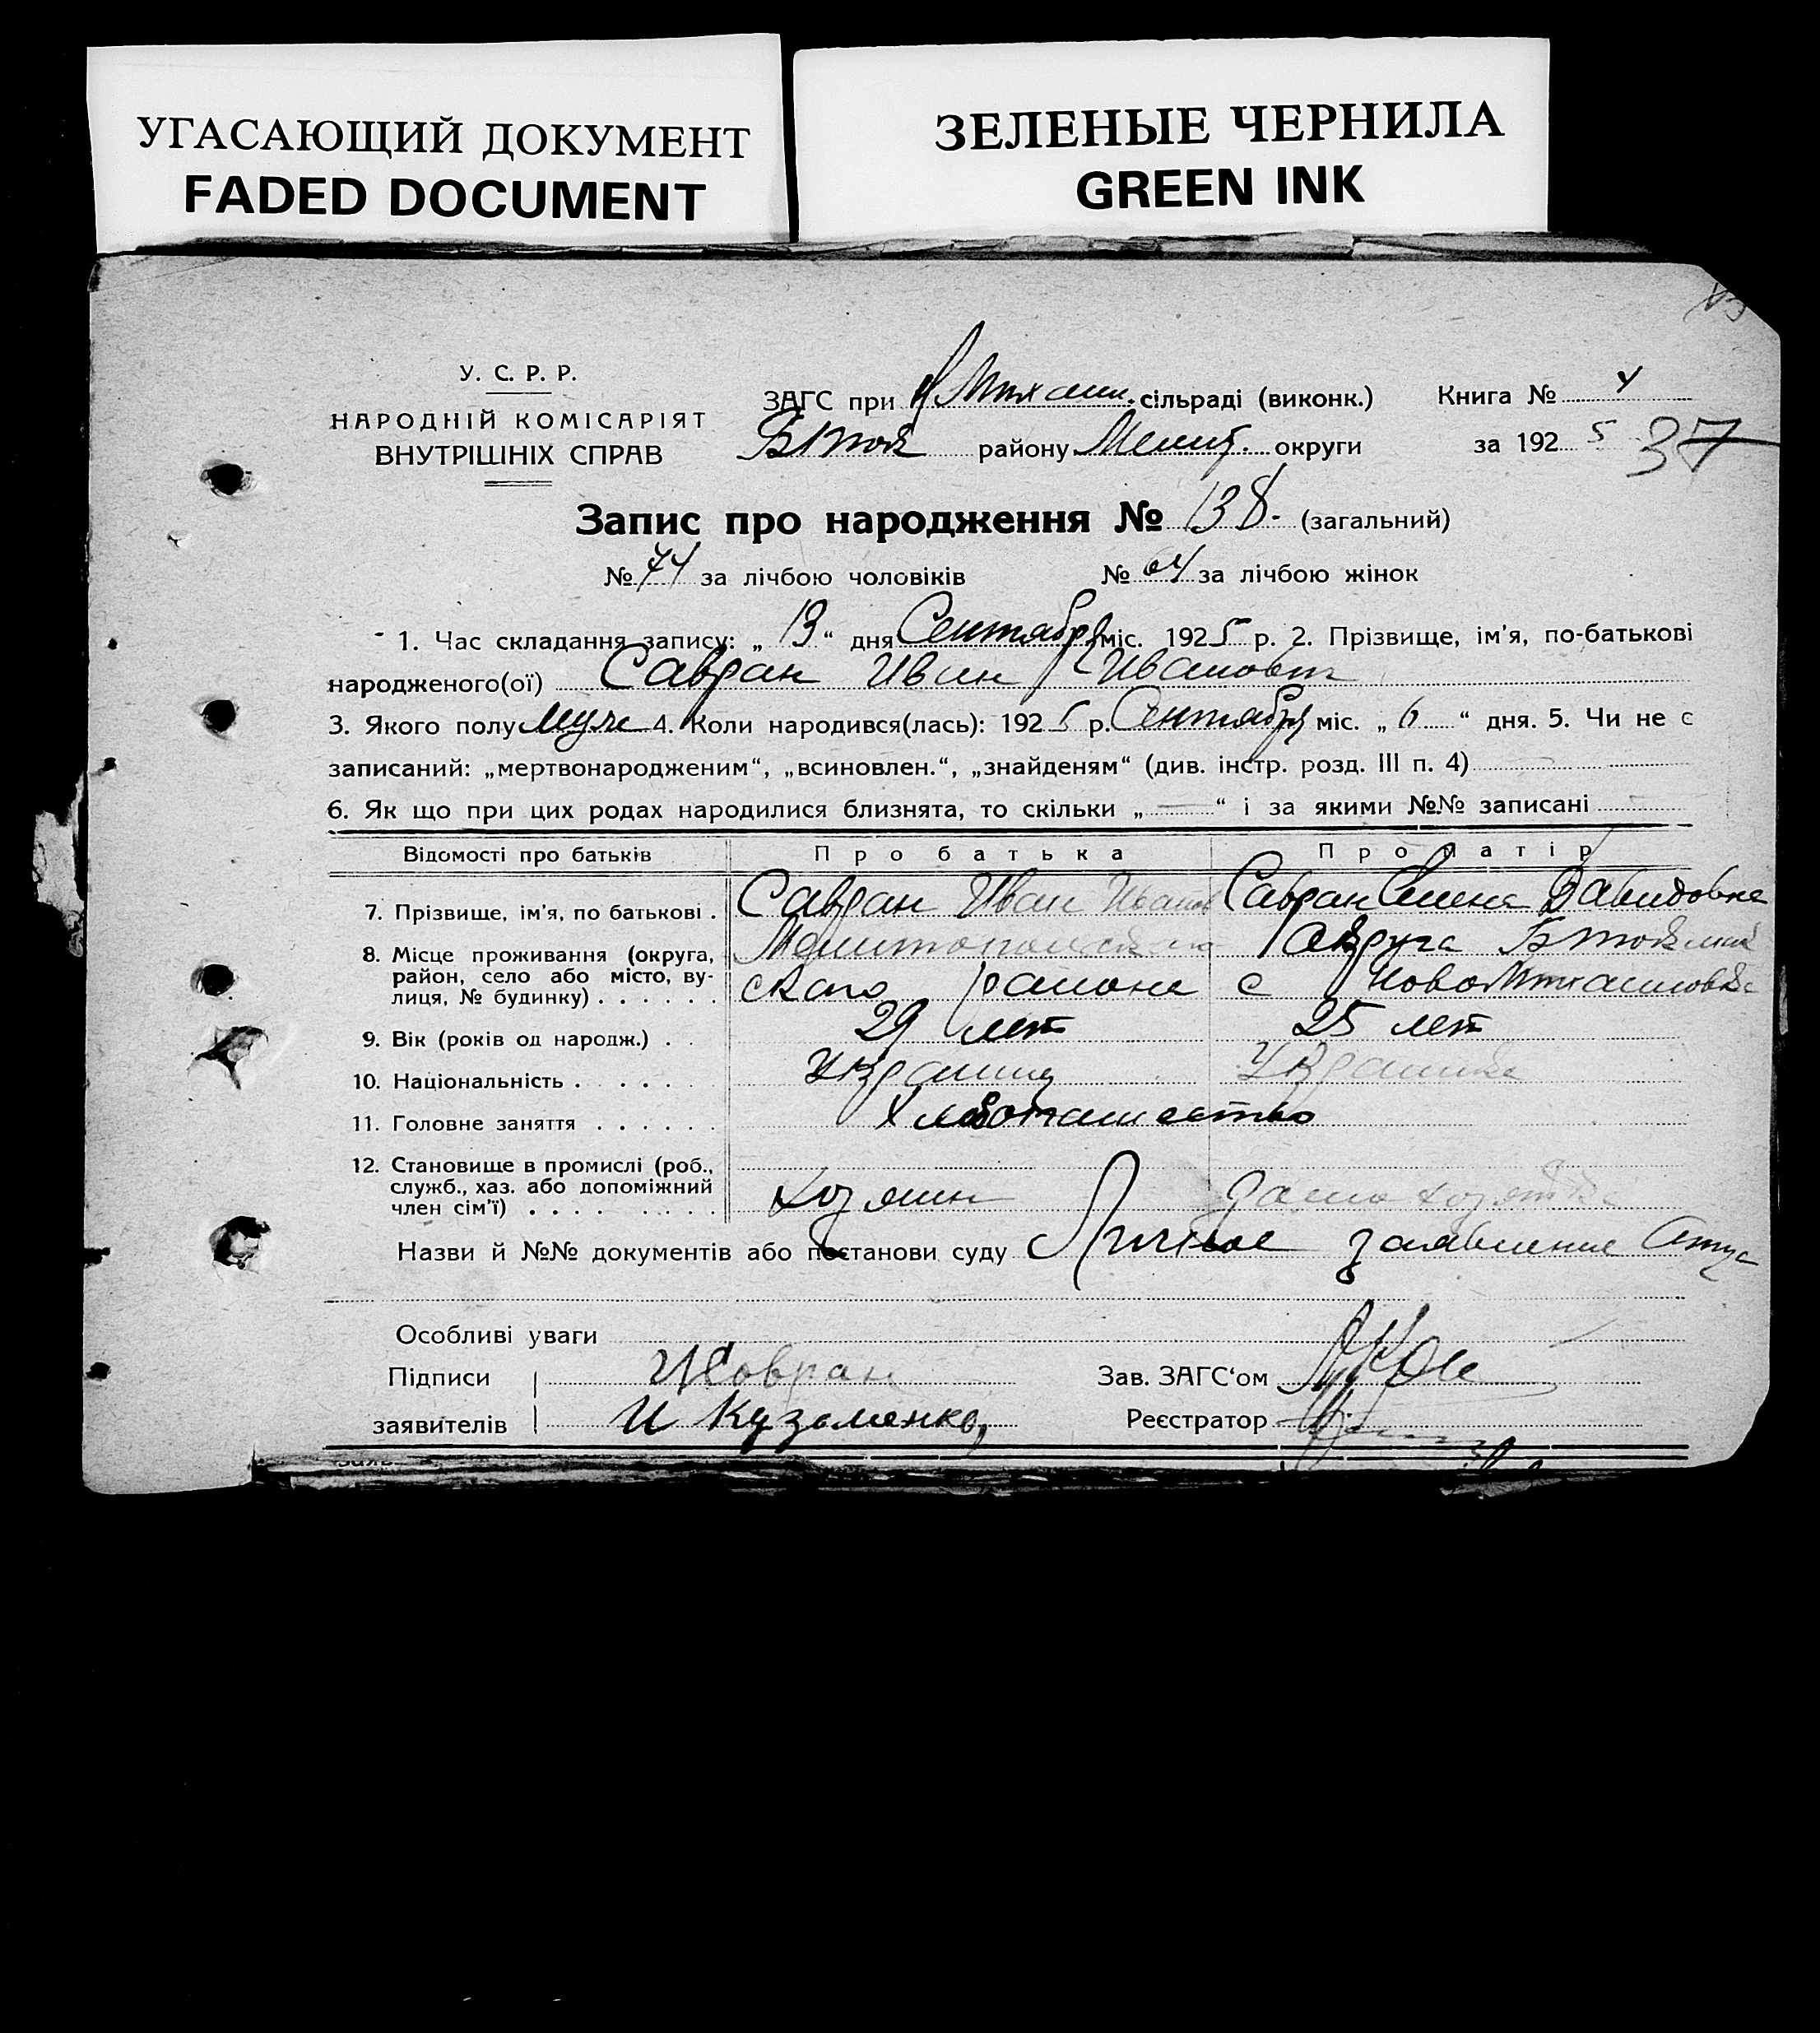 УГАСАЮЩИЙ ДОКУМЕНТ
FADED DOCUMENT
ЗЕЛЕНЫЕ ЧЕРНИЛА
GREEN INK
У. С. Р. Р.
НАРОДНІЙ КОМІСАРІЯТ
ВНУТРІШНІХ СПРАВ
ЗАГС при сільраді (виконк.) Книга № 4
району Мелит. округи за 1925 37
Запис про народження № 138. (загальний)
№ 74 за лічбою чоловіків № 64 за лічбою жінок
1. Час складання запису: „ 13 “ дня Сентября міс. 1925 р. 2. Прізвище, ім'я, по-батькові
народженого(ої) Савран Иван Иванович
3. Якого полу муж 4. Коли народився(лась): 1925 р. Сентября міс. „ 6 “ дня. 5. Чи не є
записаний: „мертвонародженим“, „всиновлен.“, „знайденям“ (див. інстр. розд. III п. 4)
6. Як що при цих родах народилися близнята, то скільки „ — “ і за якими №№ записані —
Відомості про батьків Про батька Про матір
7. Прізвище, ім'я, по батькові . Савран Иван Иванов Савран Елена Давидовна
8. Місце проживання (округа, район, село або місто, вулиця, № будинку) . . . . . . Мелитопольская округа
ского района с Ново
9. Вік (років од народж.) . . 29 лет 25 лет
10. Національність . . . . . Украинец Украинка
11. Головне заняття . . . . . . Хлебопашество
12. Становище в промислі (роб., служб., хаз. або допоміжний член сім'ї) . . . . . . . . Хозяин
Назви й №№ документів або постанови суду Личное заявление Отца
Особливі уваги
Підписи И Совран Зав. ЗАГС'ом
заявителів И Кузоменко Реєстратор